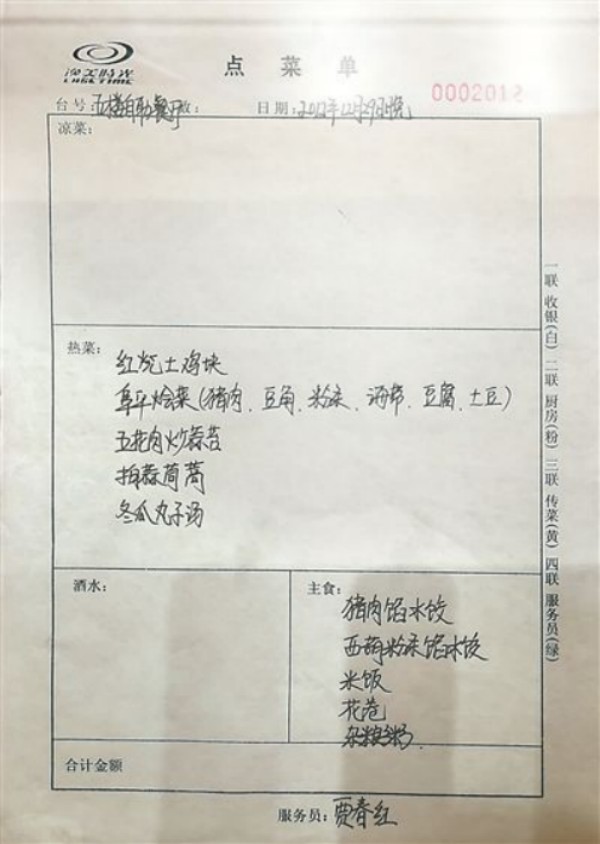 渔美时光
LIFE TIME
点菜单
0002012
台号:五楼自助餐厅 数: 日期:2012年12月29日晚
凉菜:
热菜:
红烧土鸡块
阜平烩菜(猪肉、豆角、粉条、海带、豆腐、土豆)
五花肉炒蒜苔
拍蒜茼蒿
冬瓜丸子汤
酒水:
主食:
猪肉馅水饺
西葫粉条馅水饺
米饭
花卷
杂粮粥
合计金额
服务员:贾春红
一联 收银(白) 二联 厨房(粉) 三联 传菜(黄) 四联 服务员(绿)